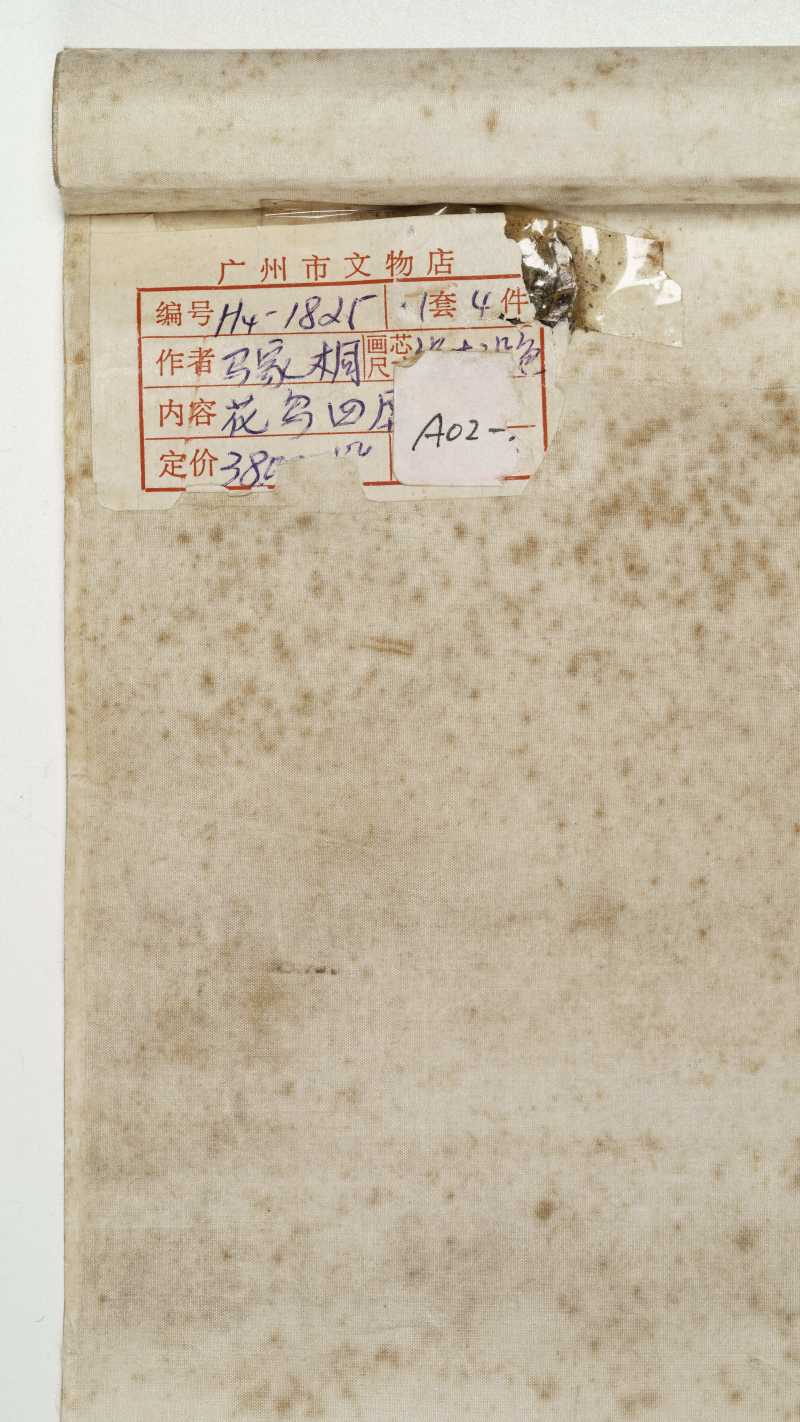 广州市文物店
编号 H4-1825 1套 4件
作者 马家桐 画芯尺
内容 花鸟四
定价 380
A02-